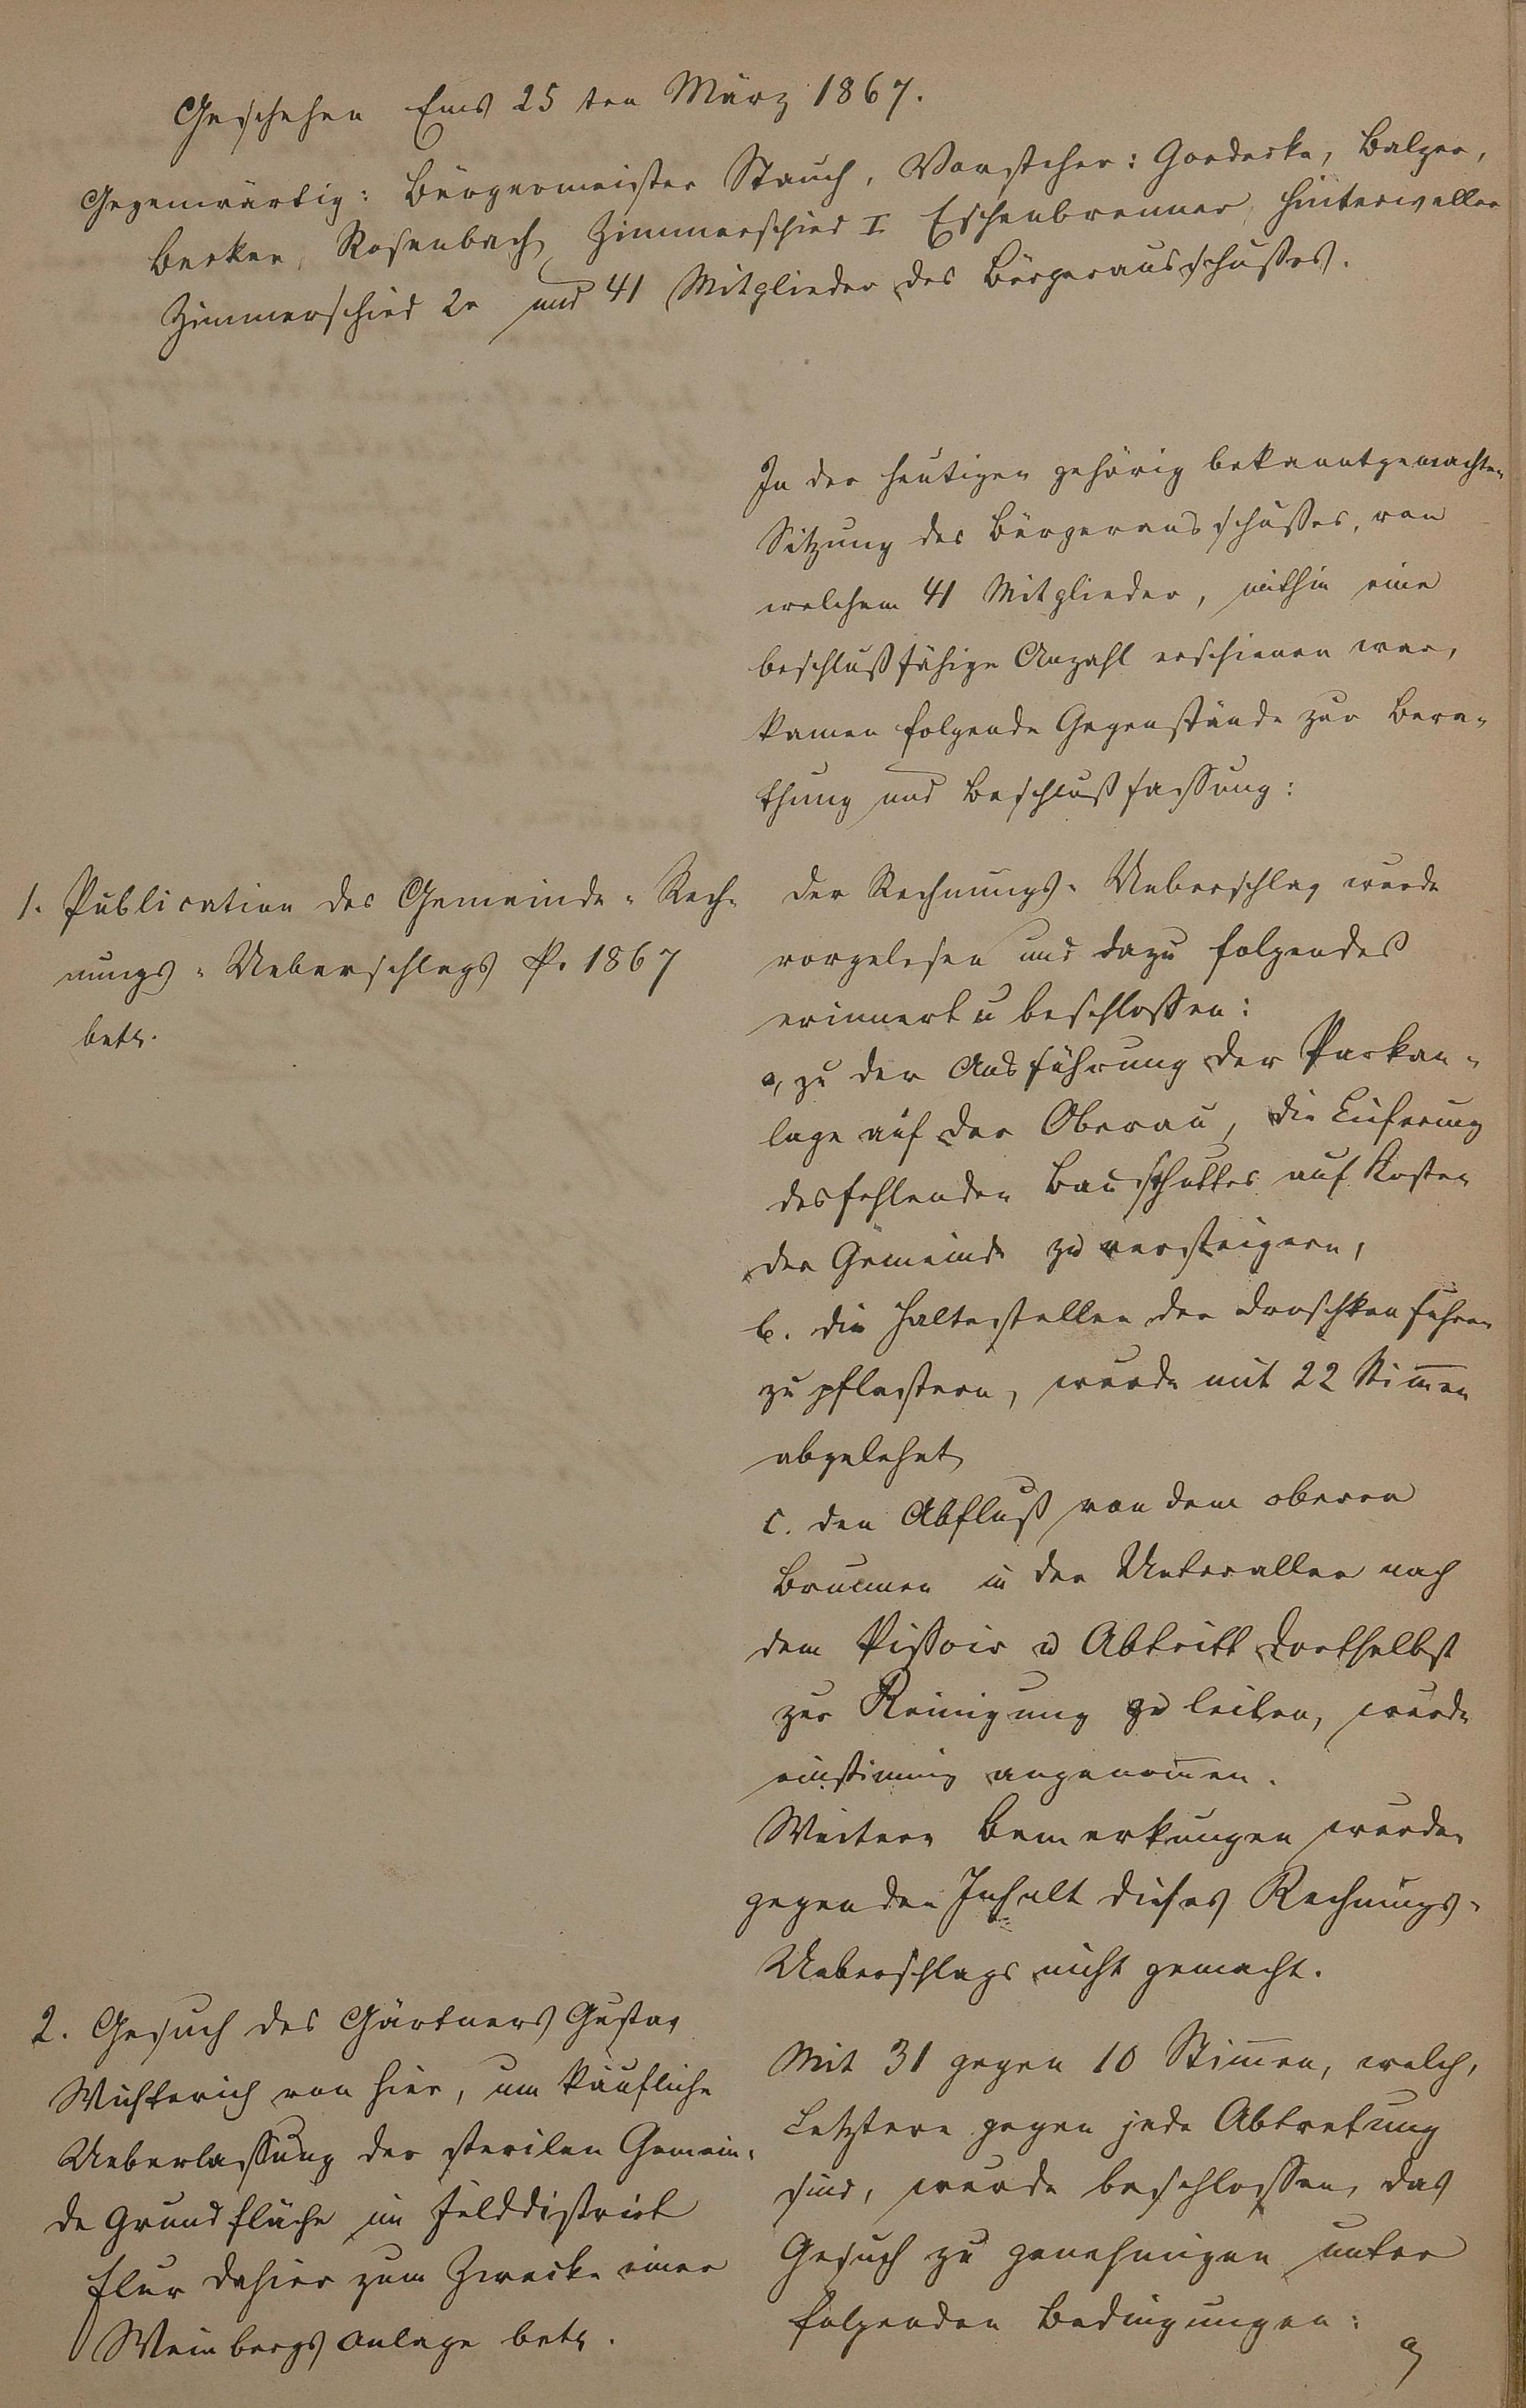 Geschehen Ems 25 ten März 1867.
Gegenwärtig: Bürgermeister Stauch, Vorsteher: Goedecke, Balzer,
Becker, Rosenbach, Zimmerschied I Eschenbrenner, Hinterwäller
Zimmerschied 2r und 41 Mitglieder des Bürgerausschußes.
In der heutigen gehörig bekanntgemachten
Sitzung des Bürgerausschußes, von
welchem 41 Mitglieder, mithin eine
beschlußfähige Anzahl erschienen war,
kamen folgende Gegenstände zur Bera-
thung und Beschlußfassung:
1. Publication des Gemeinde-Rech-
nungs-Ueberschlags p. 1867
betr.
Der Rechnungs-Ueberschlag wurde
vorgelesen und dazu folgendes
erinnert u beschlossen:
a, zu der Ausführung der Parkan-
lage auf der Oberau, die Lieferung
des fehlenden Bauschuttes auf Kosten
der Gemeinde zu versteigern,
b. die Haltestellen der Droschkenfuhren
zu pflastern, wurde mit 22 Stimen
abgelehnt
c. den Abfluß von dem oberen
Brunnen in der Unterallee nach
dem Pissoir u Abtritt dortselbst
zur Reinigung zu leiten, wurde
einstimig angenomen.
Weitere Bemerkungen wurden
gegen den Inhalt dieses Rechnungs-
Ueberschlags nicht gemacht.
2. Gesuch des Gärtners Gustav
Wichterich von hier, um käufliche
Ueberlassung der sterilen Gemein-
de Grundfläche im Felddistrict
Flur dahier zum Zwecke einer
Weinbergsanlage betr.
Mit 31 gegen 10 Stimen, welch,
Letztere gegen jede Abtretung
sind, wurde beschlossen, das
Gesuch zu genehmigen unter
folgenden Bedingungen:
a,